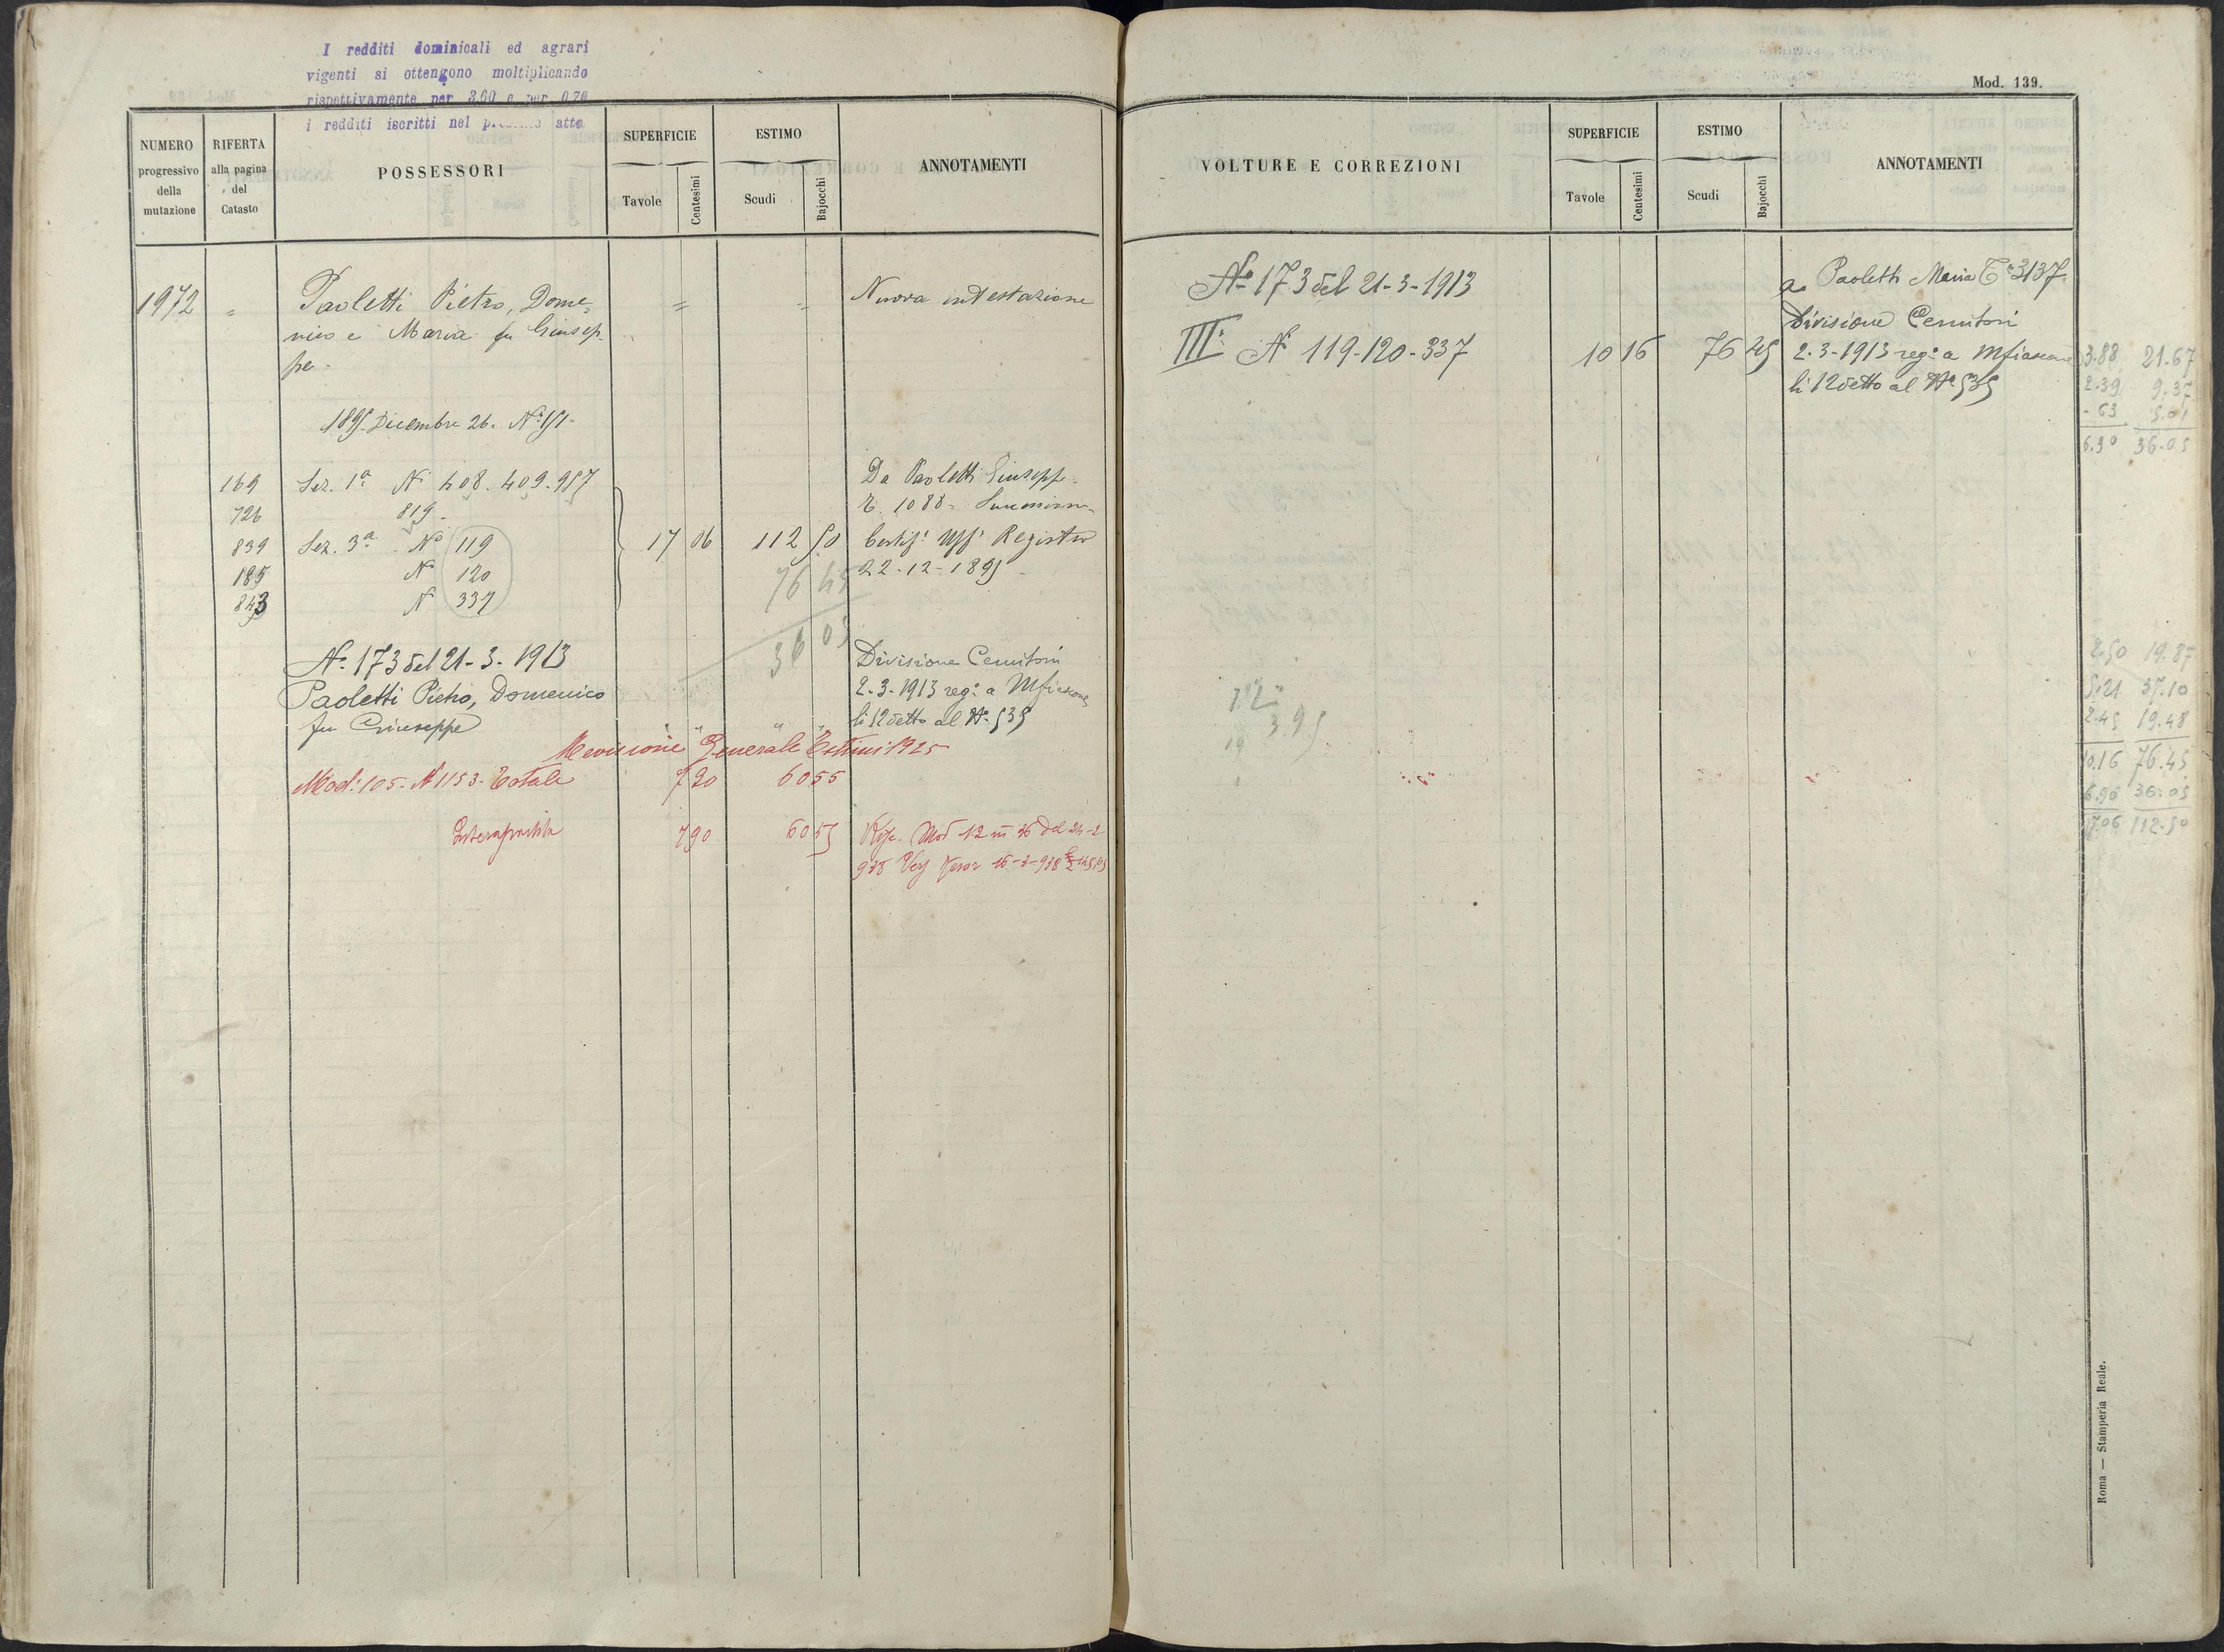 I redditi dominicali ed agrari
vigenti si ottengono moltiplicando
rispettivamente per 3,60 e per 0,76
i redditi iscritti nel atto
NUMERO
progressivo
della
mutazione
RIFERTA
alla pagina
del
Catasto
POSSESSORI
SUPERFICIE
Tavole
Centesimi
ESTIMO
Scudi
Bajocchi
ANNOTAMENTI
1972 " Paoletti Pietro, Dome= = = Nuova intestazione
nico e Maria fu Giusep-
pe.
1895 Dicembre 26. N° 151.
169 Sez. 1ª N. 408. 409. 957 Da Paoletti Giusepp.
726 819 - 1088 - Successione
839 Sez. 3ª N° 119 17 06 112 50 Certif. Uff. Registro
185 N 120 76 45 22-12-1895
843 N 337
36 05
N° 173 del 21-3-1913 Divisione Cernitori
Paoletti Pietro, Domenico 2-3-1913 reg° a Mfiascone
fu Giuseppe li 12 detto al N° 535
Revisione Generale Estimi 1925
Mod: 105- N 1153- Totale 7 90 60 55
7 90 60 55 Mod 12 n 36 del 24-2
938 16-3-938
Mod. 139.
VOLTURE E CORREZIONI
SUPERFICIE
Tavole
Centesimi
ESTIMO
Scudi
Bajocchi
ANNOTAMENTI
N° 173 del 21-3-1913 a Paoletti Maria T° 3137
Divisione Cernitori
III: N° 119-120-337 10 16 76 45 2-3-1913 reg° a Mfiascone
li 12 detto al N° 535
3.88 21.67
2.39 9.37
- 63 5.01
6.90 36.05
2.50 19.87
5.21 37.10
2.45 19.48
10.16 76.45
6.90 36.05
17.06 112.50
395
19
Roma — Stamperia Reale.